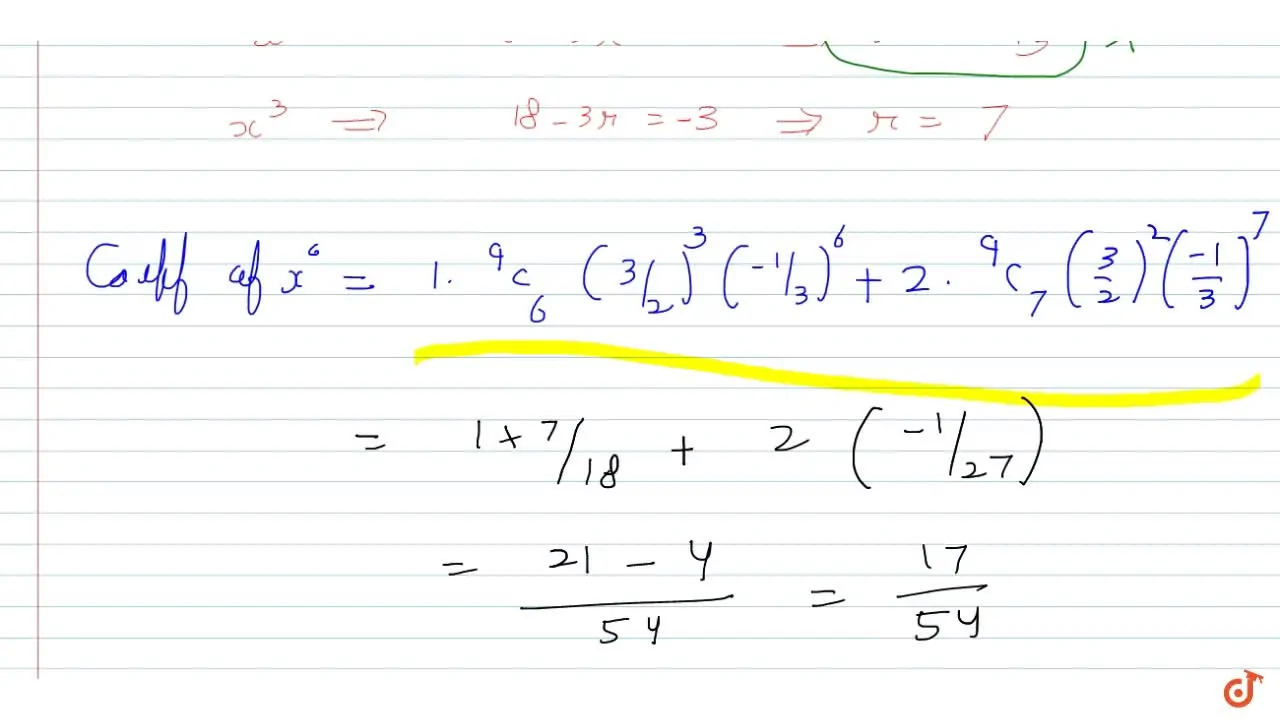 x³ ⇒ 18 - 3r = -3 ⇒ r = 7
Coeff of x⁰ = 1. ⁹C₆ (3/2)³ (-1/3)⁶ + 2. ⁹C₇ (3/2)² (-1/3)⁷
= 1 × 7/18 + 2 (-1/27)
= (21 - 4)/54 = 17/54